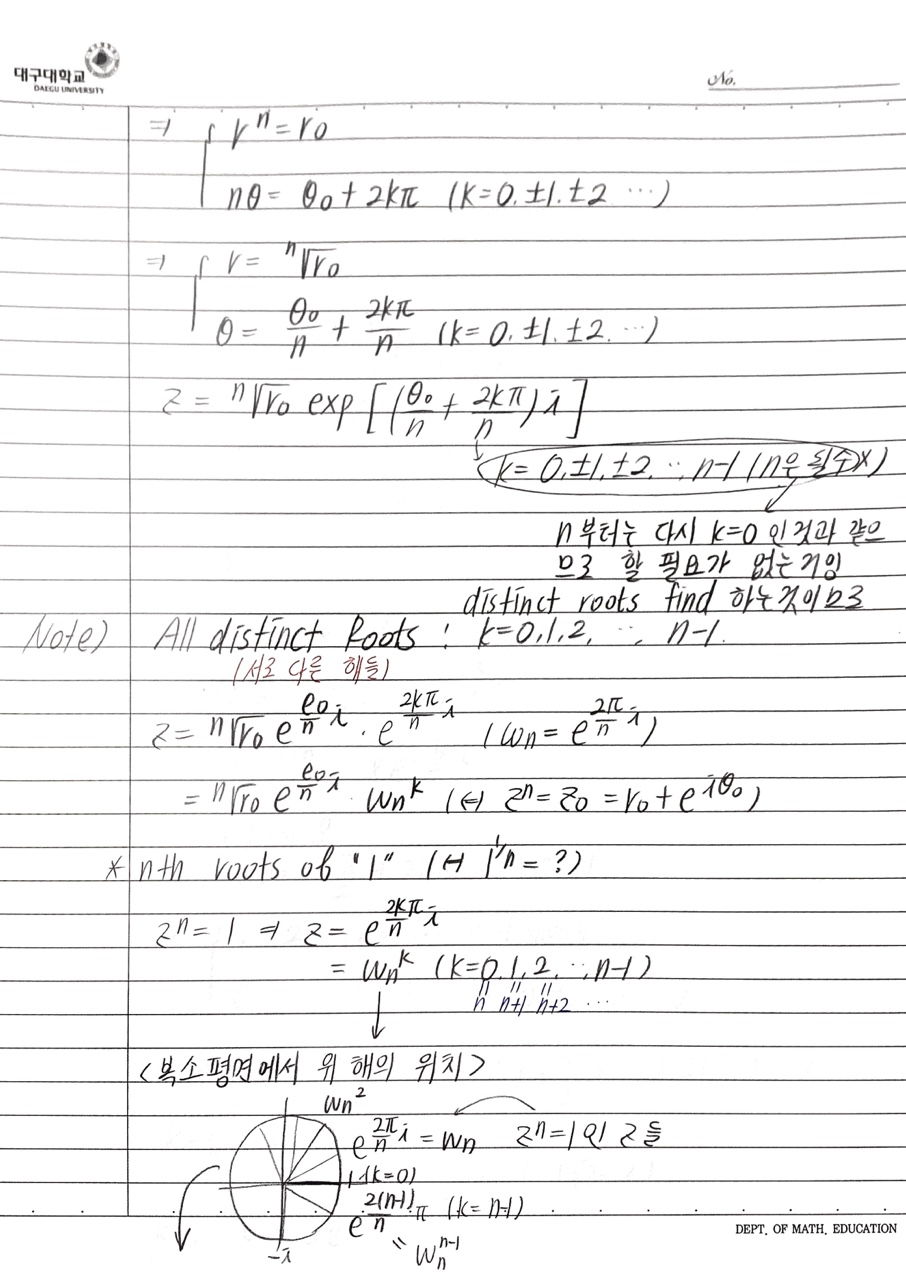 대구대학교
DAEGU UNIVERSITY
No.
⇒ { rⁿ = r₀
nθ = θ₀ + 2kπ (k = 0. ±1. ±2 ⋯)
⇒ { r = ⁿ√r₀
θ = θ₀/n + 2kπ/n (k = 0. ±1. ±2. ⋯)
z = ⁿ√r₀ exp[(θ₀/n + 2kπ/n)i]
k = 0, ±1, ±2, ⋯, n-1 (n은 필수x)
n부터는 다시 k=0 인것과 같으
므로 할 필요가 없는거임
distinct roots find 하는것이므로
Note) All distinct Roots : k=0,1,2, ⋯, n-1.
(서로 다른 해들)
z = ⁿ√r₀ e^(θ₀/n i) · e^(2kπ/n i) (ωₙ = e^(2π/n i))
= ⁿ√r₀ e^(θ₀/n i) · ωₙᵏ (↔ zⁿ = z₀ = r₀ + e^(iθ₀))
* nth roots of "1" (↔ 1^(1/n) = ?)
zⁿ = 1 ⇒ z = e^(2kπ/n i)
= ωₙᵏ (k=0, 1, 2, ⋯, n-1)
n n+1 n+2 ⋯
<복소평면에서 위 해의 위치>
ωₙ²
e^(2π/n i) = ωₙ zⁿ=1인 z들
1 (k=0)
e^(2(n-1)/n π) (k=n-1)
-i
" ωₙⁿ⁻¹
DEPT. OF MATH. EDUCATION